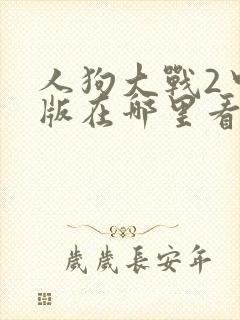 人狗大戰2中
版在哪里看
歲歲長安年